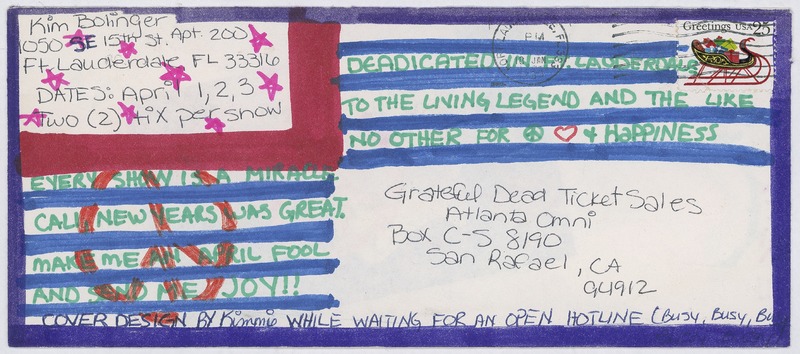 Kim Bolinger
1050 SE 15TH St. Apt. 200
Ft. Lauderdale FL 33316
DATES: April 1, 2, 3
Two (2) tix per show
PM
JAN
Greetings USA 25
DEADICATED IN FT. LAUDERDALE
TO THE LIVING LEGEND AND THE LIKE
NO OTHER FOR ☮ ♡ + HAPPINESS
EVERY SHOW IS A MIRACLE.
CALI NEW YEARS WAS GREAT.
MAKE ME AN APRIL FOOL
AND SEND ME JOY!!
Grateful Dead Ticket Sales
Atlanta Omni
Box C-S 8190
San Rafael, CA
94912
COVER DESIGN BY Kimmie WHILE WAITING FOR AN OPEN HOTLINE (BUSY, BUSY, BU